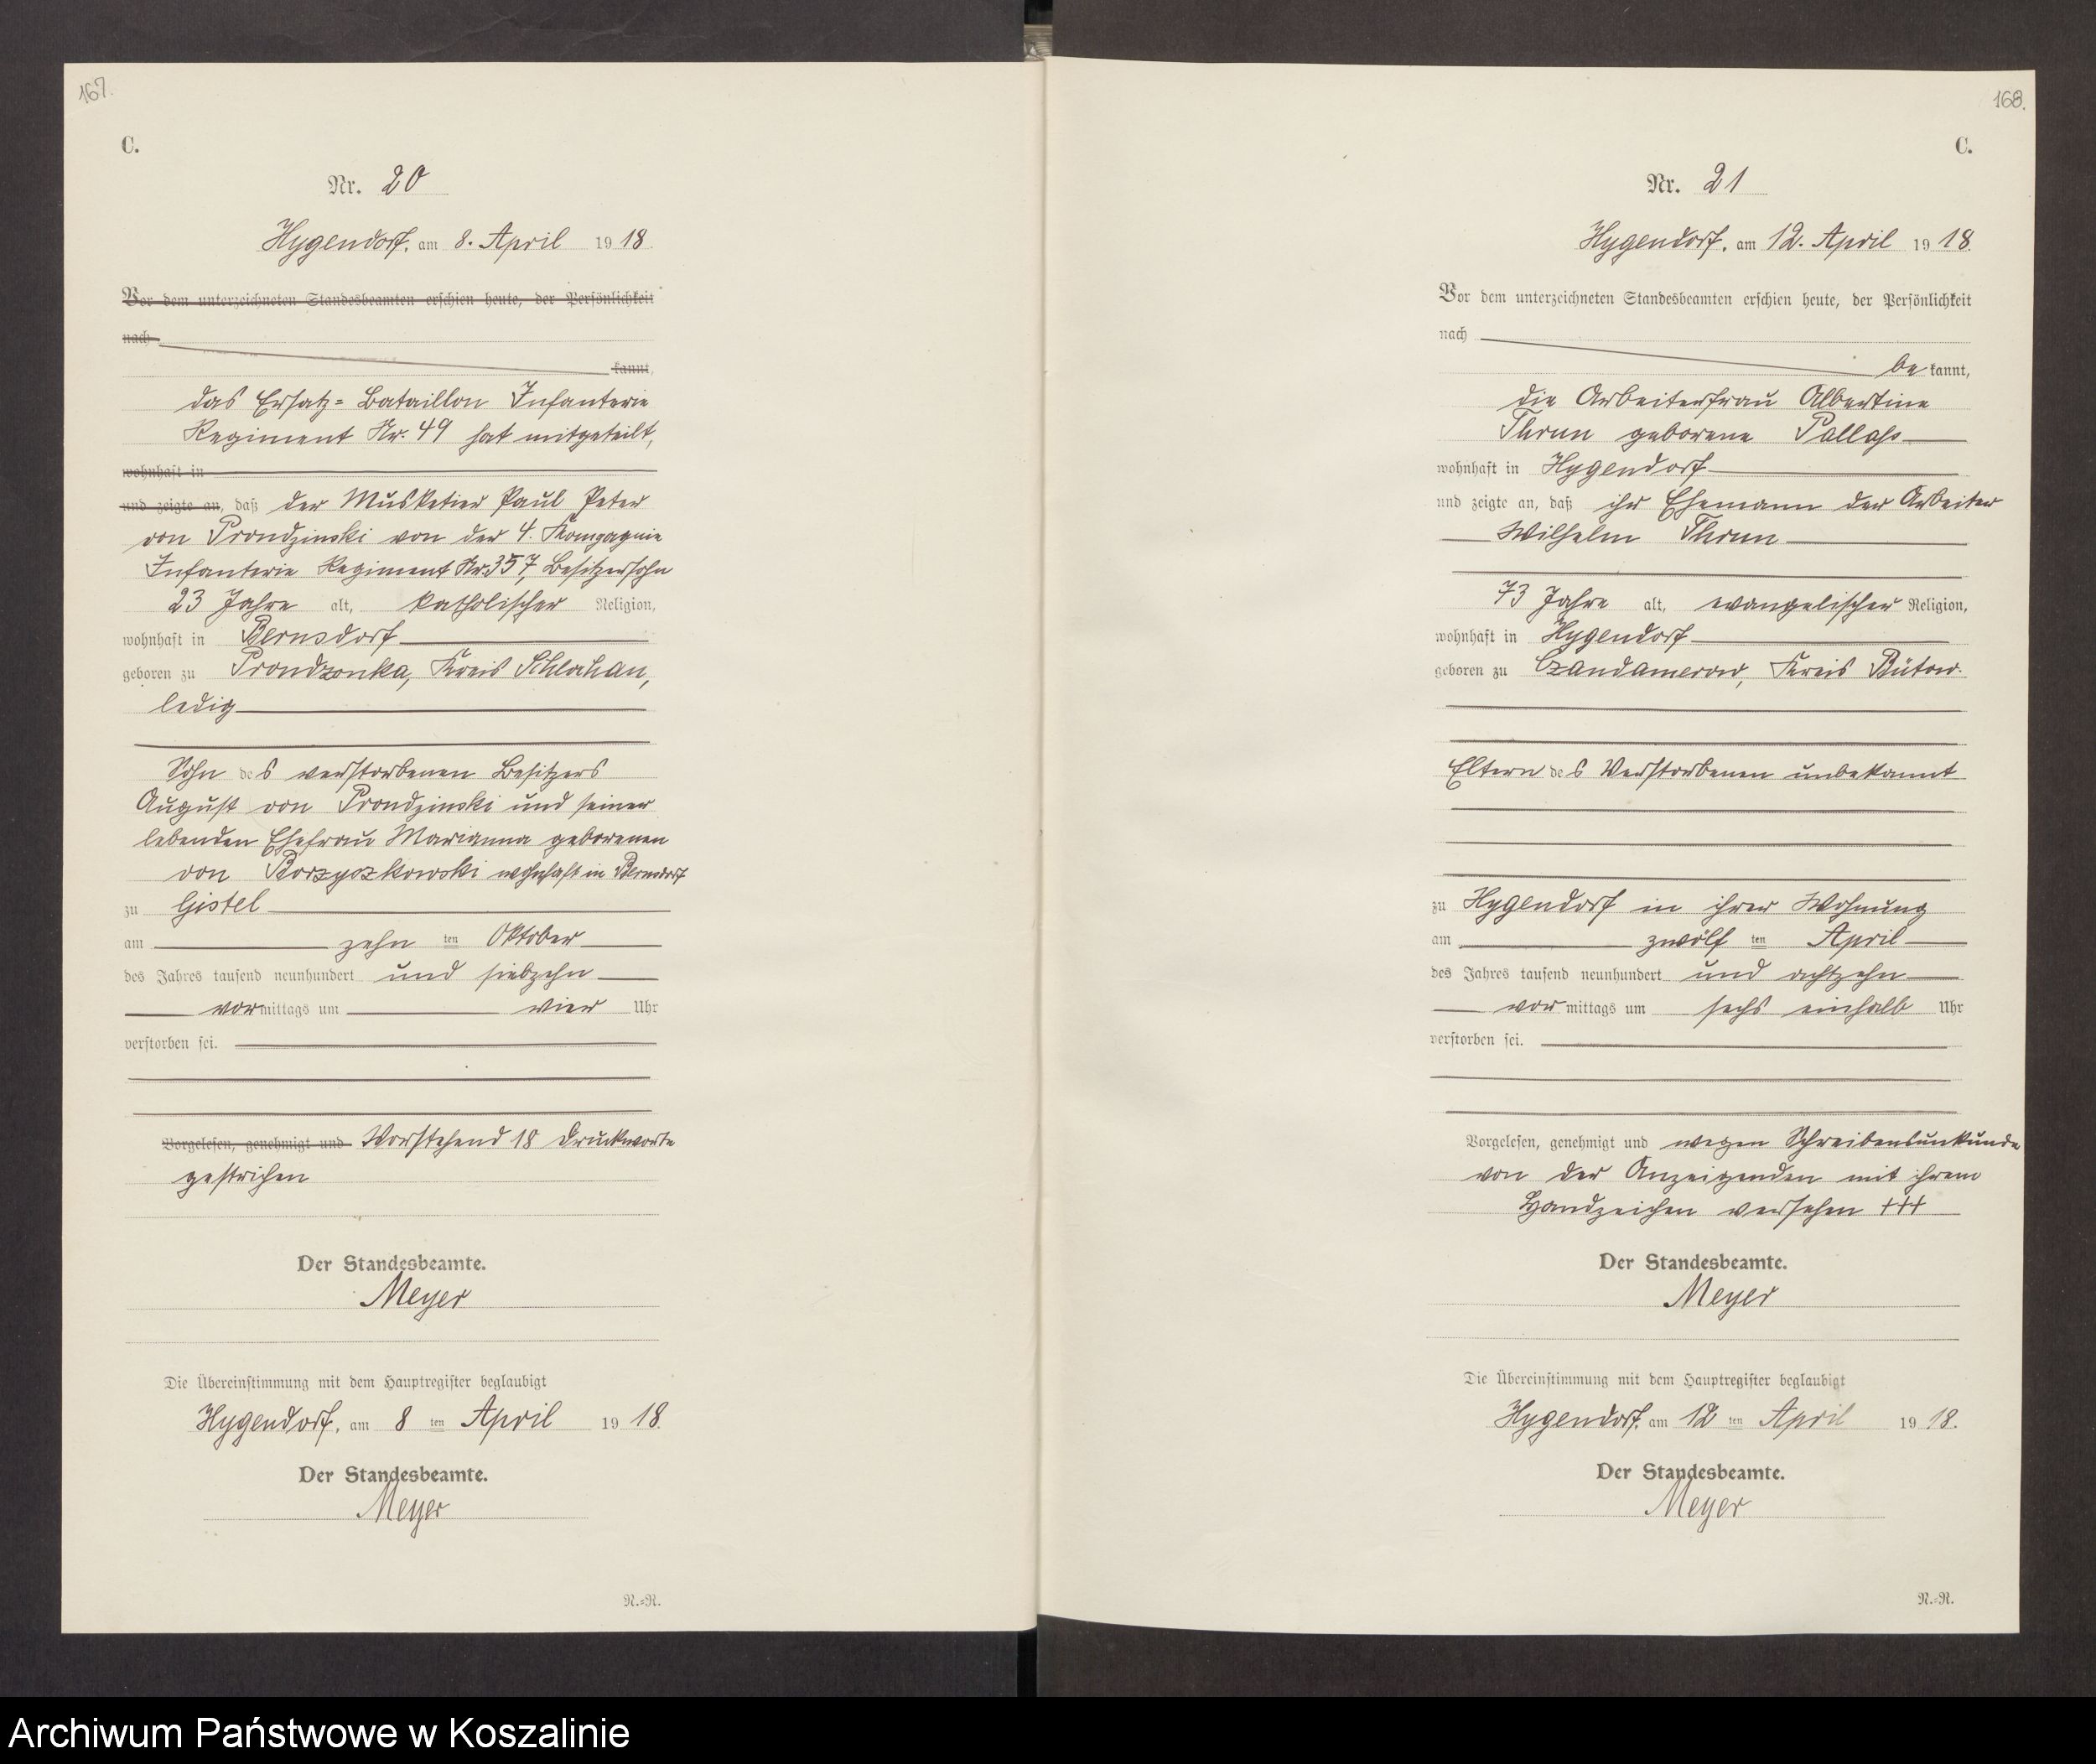 167.
C.
Nr. 20
Hygendorf, am 8. April 1918.
Vor dem unterzeichneten Standesbeamten erschien heute, der Persönlichkeit
nach
kannt,
das Ersatz-Bataillon Infanterie
Regiment Nr. 49 hat mitgeteilt,
wohnhaft in
und zeigte an, daß der Musketier Paul Peter
von Prondzinski von der 4. Kompagnie
Infanterie Regiment Nr. 357, Besitzersohn
23 Jahre alt, katholischer Religion,
wohnhaft in Bernsdorf
geboren zu Prondzonka, Kreis Schlochau,
ledig
Sohn des verstorbenen Besitzers
August von Prondzinski und seiner
lebenden Ehefrau Marianna geborenen
von Borzyszkowski wohnhaft in Bernsdorf
zu Gistel
am zehn ten Oktober
des Jahres tausend neunhundert und siebzehn
vormittags um vier Uhr
verstorben sei.
Vorgelesen, genehmigt und Vorstehend 18 Druckworte
gestrichen
Der Standesbeamte.
Meyer
Die Übereinstimmung mit dem Hauptregister beglaubigt
Hygendorf, am 8 ten April 1918.
Der Standesbeamte.
Meyer
R.-R.
168.
C.
Nr. 21
Hygendorf, am 12. April 1918.
Vor dem unterzeichneten Standesbeamten erschien heute, der Persönlichkeit
nach
bekannt,
die Arbeiterfrau Albertine
Thrun geborene Pallaß
wohnhaft in Hygendorf
und zeigte an, daß ihr Ehemann der Arbeiter
Wilhelm Thrun
73 Jahre alt, evangelischer Religion,
wohnhaft in Hygendorf
geboren zu Czandamerow, Kreis Bütow.
Eltern des Verstorbenen unbekannt
zu Hygendorf in ihrer Wohnung
am zwölf ten April
des Jahres tausend neunhundert und achtzehn
vormittags um sechs einhalb Uhr
verstorben sei.
Vorgelesen, genehmigt und wegen Schreibensunkunde
von der Anzeigenden mit ihrem
Handzeichen versehen +++
Der Standesbeamte.
Meyer
Die Übereinstimmung mit dem Hauptregister beglaubigt
Hygendorf, am 12 ten April 1918.
Der Standesbeamte.
Meyer
R.-R.
Archiwum Państwowe w Koszalinie